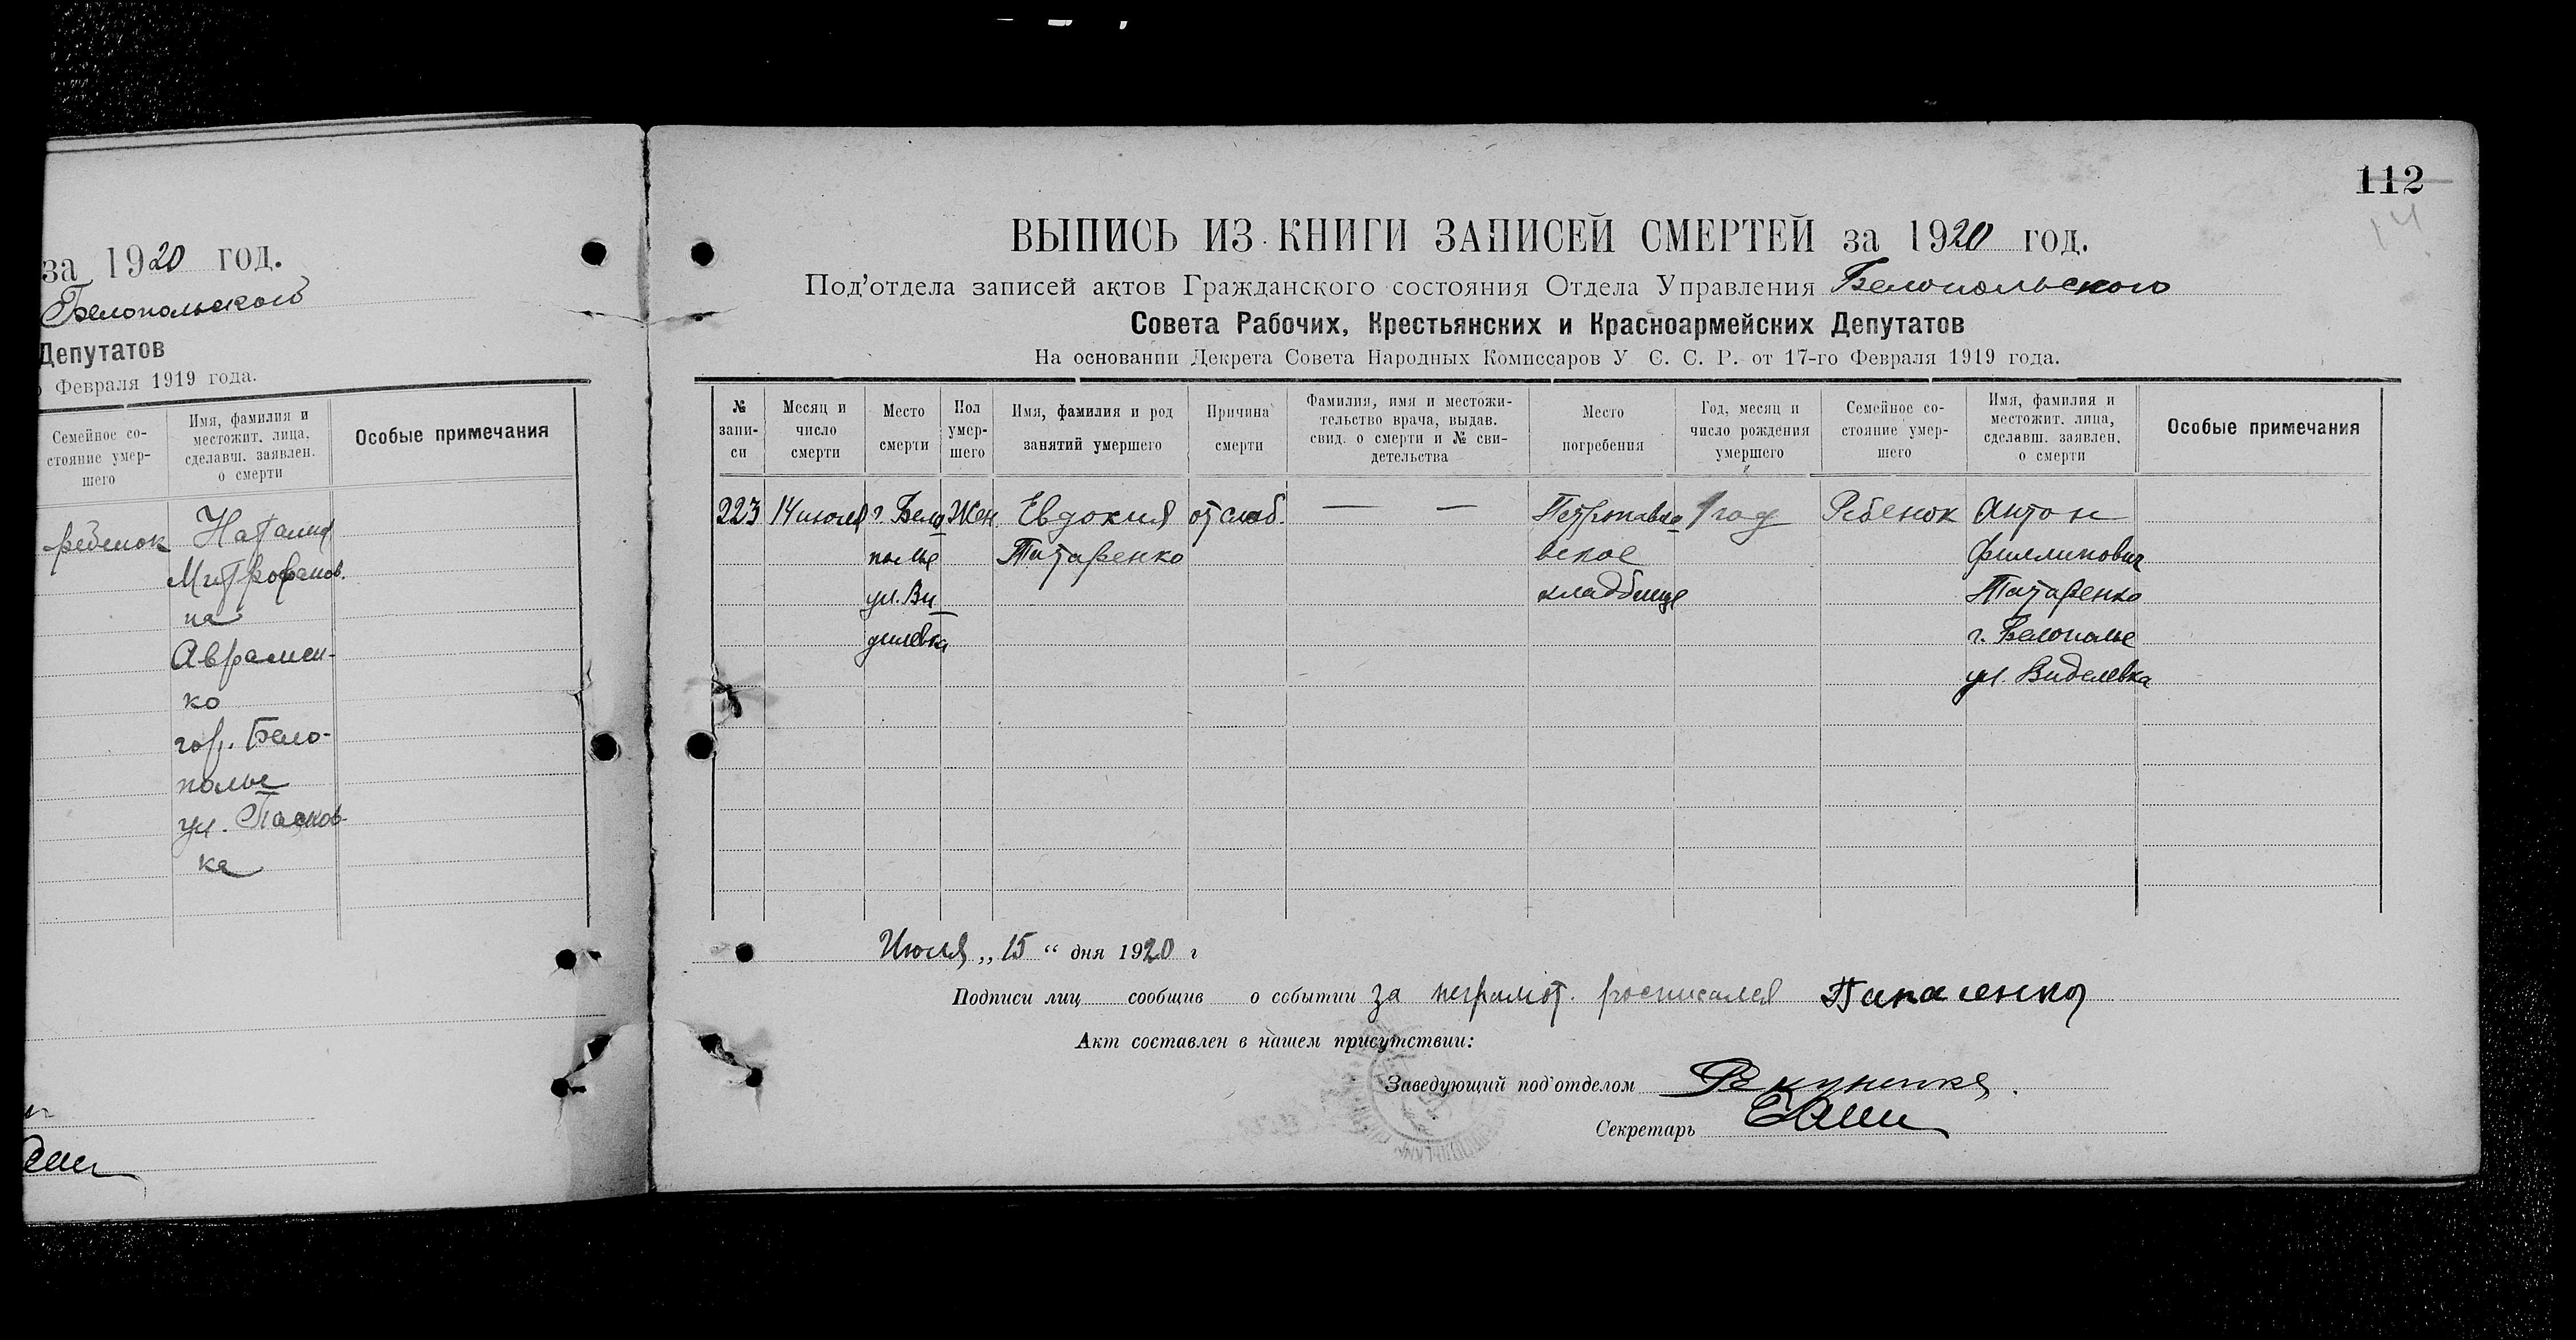 за 1920 год.
Белопольского
Депутатов
Февраля 1919 года.
Семейное со-
стояние умер-
шего
Имя, фамилия и
местожит. лица,
сделавш. заявлен.
о смерти
Особые примечания
ребенок
Наталия
Митрофанов.
на
Аврамен-
ко
гор. Бело-
полье
ул. Пасков-
ка
112
14
ВЫПИСЬ ИЗ КНИГИ ЗАПИСЕЙ СМЕРТЕЙ за 1920 год.
Под'отдела записей актов Гражданского состояния Отдела Управления Белопольского
Совета Рабочих, Крестьянских и Красноармейских Депутатов
На основании Декрета Совета Народных Комиссаров У С. С. Р. от 17-го Февраля 1919 года.
№
запи-
си
Месяц и
число
смерти
Место
смерти
Пол
умер-
шего
Имя, фамилия и род
занятий умершего
Причина
смерти
Фамилия, имя и местожи-
тельство врача, выдав.
свид. о смерти и № сви-
детельства
Место
погребения
Год, месяц и
число рождения
умершего
Семейное со-
стояние умер-
шего
Имя, фамилия и
местожит. лица,
сделавш. заявлен.
о смерти
Особые примечания
223
14 июля
г. Бело
полье
ул. Ви
делевка
Жен
Евдокия
Татаренко
от слаб.
— —
Петропавло
вское
кладбище
1 год
Ребенок
Антон
Филлипович
Татаренко
г. Белополье
ул. Виделевка
Июля „ 15 “ дня 1920 г
Подписи лиц сообщив о событии за неграмот. росписался
Акт составлен в нашем присутствии:
Заведующий под'отделом
Секретарь